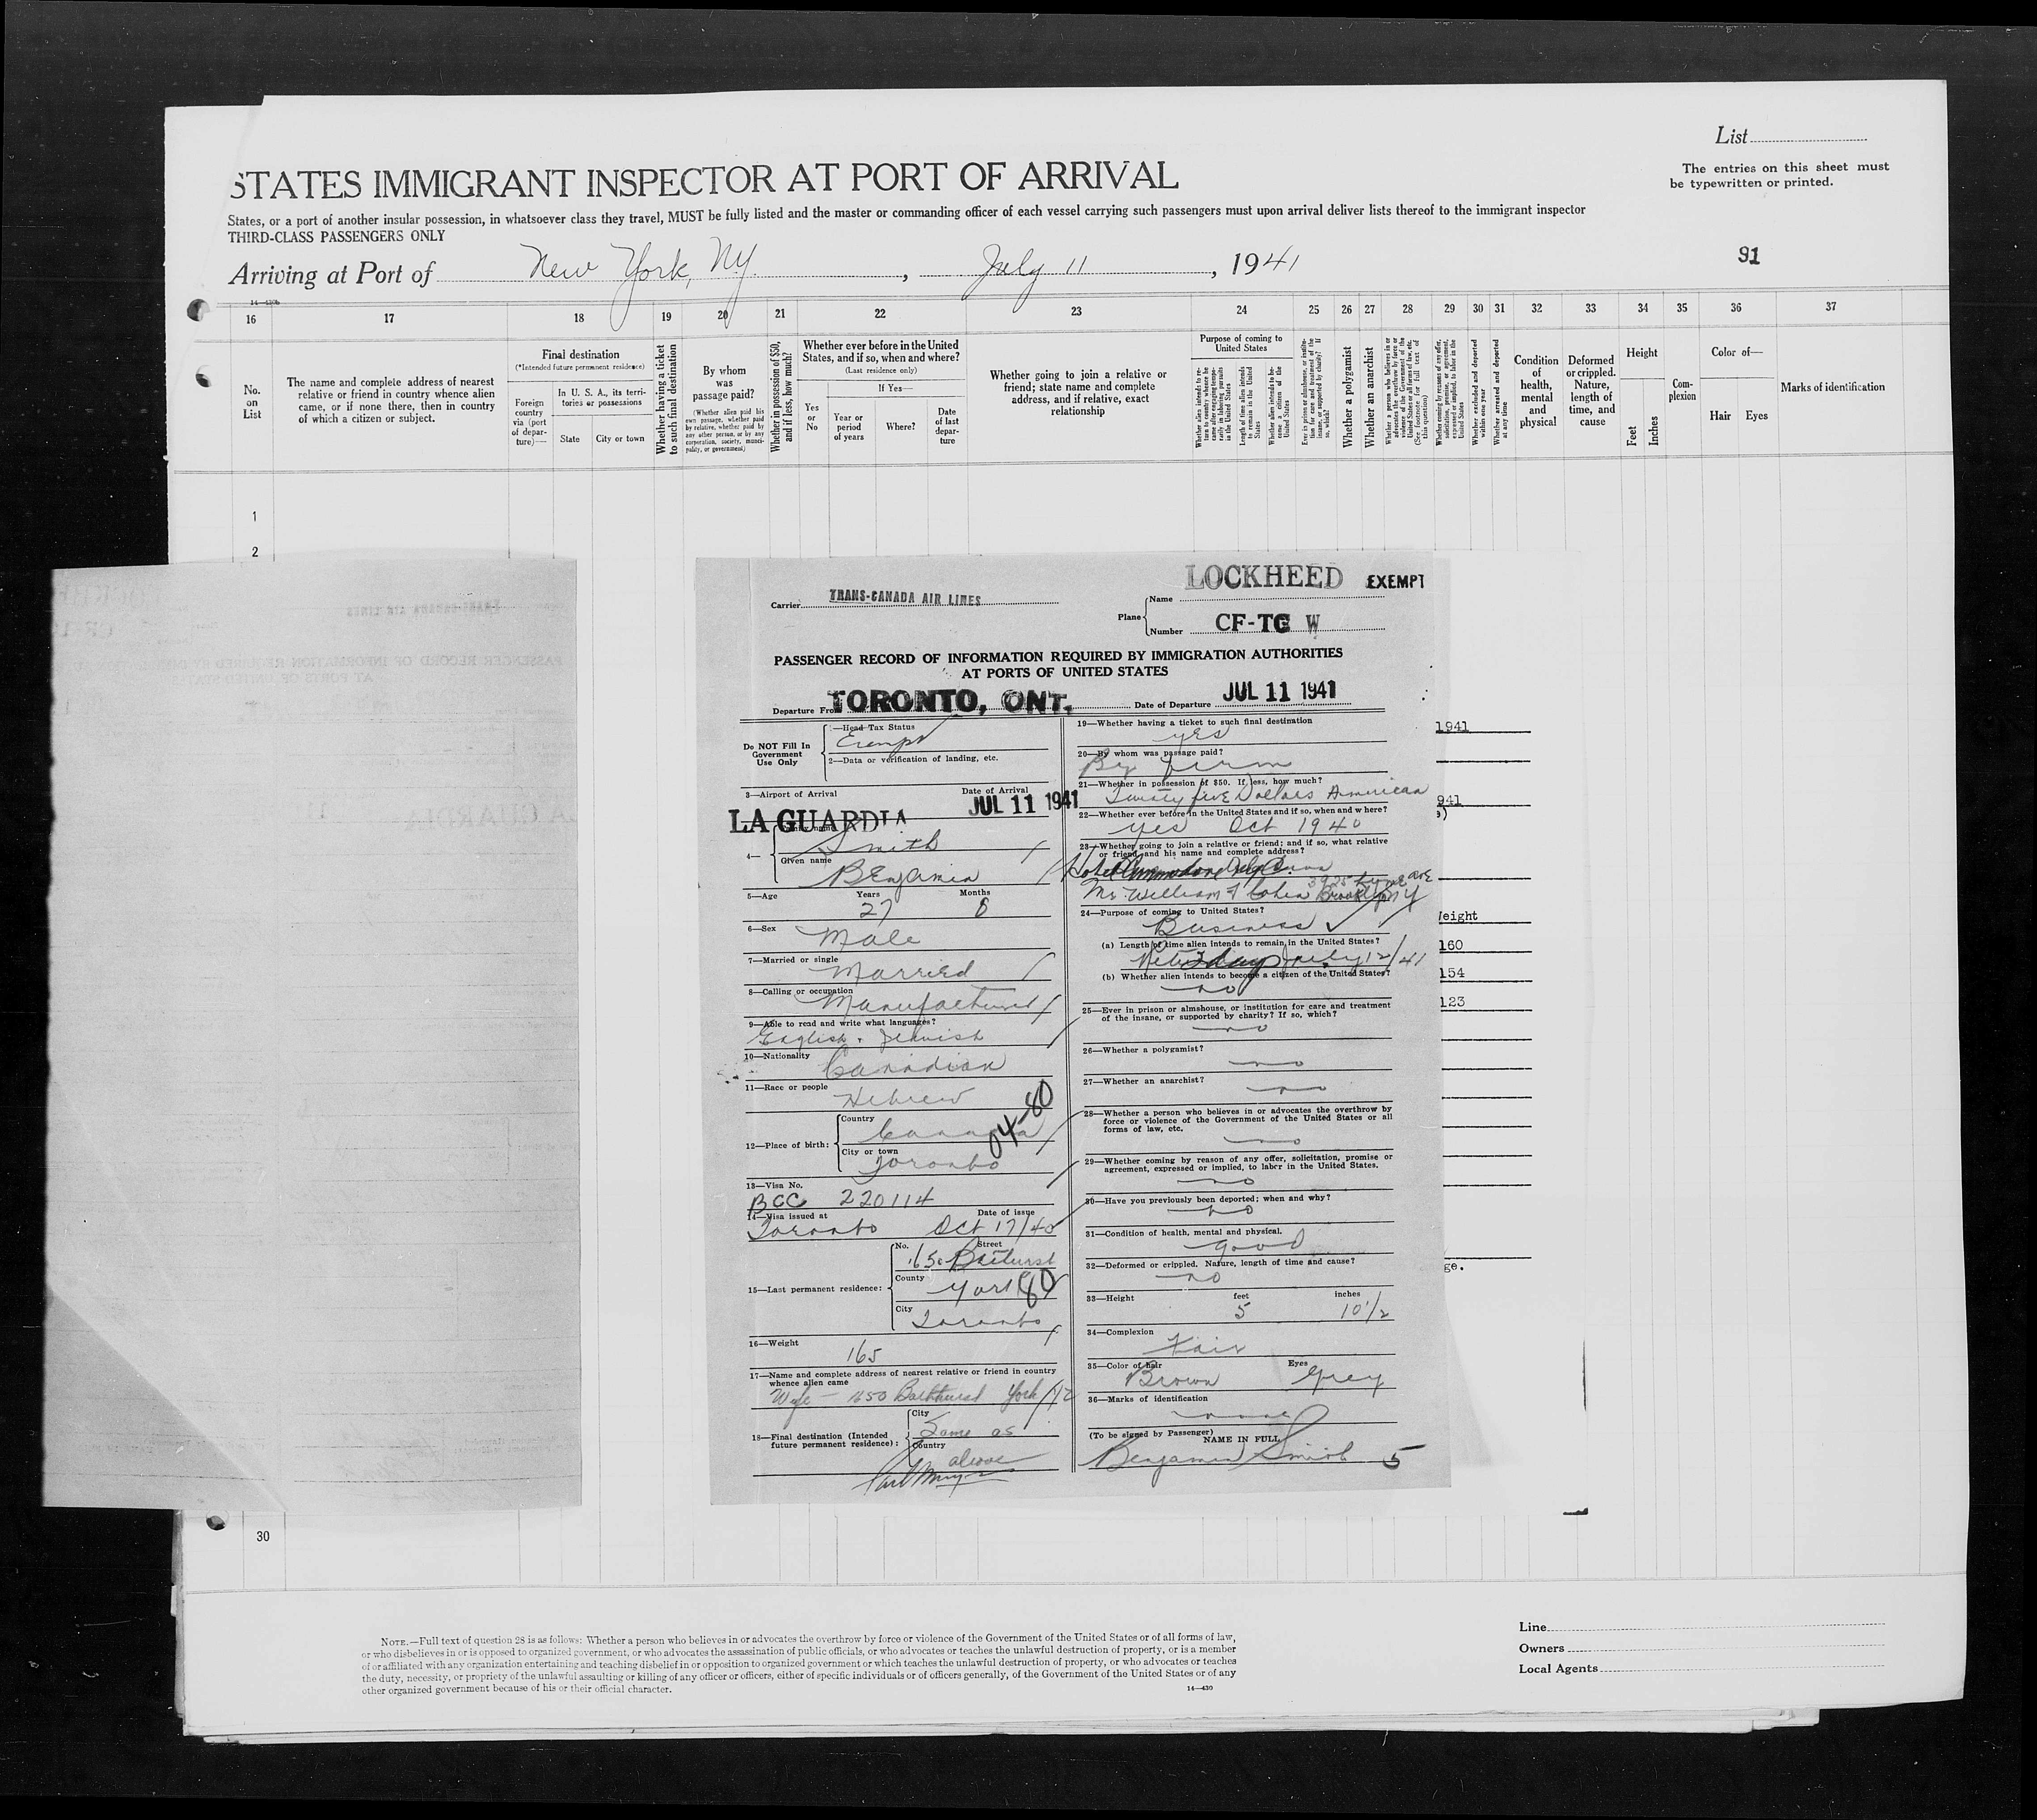 List
The entries on this sheet must
be typewritten or printed.
STATES IMMIGRANT INSPECTOR AT PORT OF ARRIVAL
States, or a port of another insular possession, in whatsoever class they travel, MUST be fully listed and the master or commanding officer of each vessel carrying such passengers must upon arrival deliver lists thereof to the immigrant inspector
THIRD-CLASS PASSENGERS ONLY
Arriving at Port of New York, NY., July 11, 1941
91
16 17 18 19 20 21 22 23 24 25 26 27 28 29 30 31 32 33 34 35 36 37
No. on List
The name and complete address of nearest relative or friend in country whence alien came, or if none there, then in country of which a citizen or subject.
Final destination
(*Intended future permanent residence)
Foreign country via (port of departure)—
In U. S. A., its territories or possessions
State
City or town
Whether having a ticket to such final destination
By whom was passage paid?
(Whether alien paid his own passage, whether paid by relative, whether paid by any other person, or by any corporation, society, municipality, or government)
Whether in possession of $50, and if less, how much?
Whether ever before in the United States, and if so, when and where?
(Last residence only)
Yes or No
If Yes—
Year or period of years
Where?
Date of last departure
Whether going to join a relative or friend; state name and complete address, and if relative, exact relationship
Purpose of coming to United States
Whether alien intends to return to country whence he came after engaging temporarily in laboring pursuits in the United States
Length of time alien intends to remain in the United States
Whether alien intends to become a citizen of the United States
Ever in prison or almshouse, or institution for care and treatment of the insane, or supported by charity? If so, which?
Whether a polygamist
Whether an anarchist
Whether a person who believes in or advocates the overthrow by force or violence of the Government of the United States or all forms of law, etc. (See footnote for full text of this question)
Whether coming by reasons of any offer, solicitation, promise, or agreement, expressed or implied, to labor in the United States
Whether excluded and deported within one year
Whether arrested and deported at any time
Condition of health, mental and physical
Deformed or crippled. Nature, length of time, and cause
Height
Feet
Inches
Complexion
Color of—
Hair
Eyes
Marks of identification
1
2
LOCKHEED EXEMPT
Carrier TRANS-CANADA AIR LINES
Plane
Name
Number CF-TG W
PASSENGER RECORD OF INFORMATION REQUIRED BY IMMIGRATION AUTHORITIES
AT PORTS OF UNITED STATES
Departure From TORONTO, ONT.
Date of Departure JUL 11 1941
Do NOT Fill In
Government
Use Only
—Head Tax Status
Exempt
2—Data or verification of landing, etc.
3—Airport of Arrival
Date of Arrival
LA GUARDIA
JUL 11 1941
4—
Smith
Given name
Benjamin
5—Age Years 27 Months 8
6—Sex
Male
7—Married or single
Married
8—Calling or occupation
Manufacturer
9—Able to read and write what languages?
English. Jewish
10—Nationality
Canadian
11—Race or people
Hebrew
12—Place of birth:
Country
Canada
04-80
City or town
Toronto
13—Visa No.
BCC 220114
14—Visa issued at
Date of issue
Toronto Oct 17/40
15—Last permanent residence:
No. Street
1650 Bathurst
County
York 80
City
Toronto
16—Weight
165
17—Name and complete address of nearest relative or friend in country
whence alien came
Wife — 1650 Bathhurst York
18—Final destination (Intended
future permanent residence):
City
Same as
Country
above
19—Whether having a ticket to such final destination
yes
20—By whom was passage paid?
By firm
21—Whether in possession of $50. If less, how much?
Twenty five Dollars American
22—Whether ever before in the United States and if so, when and where?
yes Oct 1940
23—Whether going to join a relative or friend; and if so, what relative
or friend and his name and complete address?
Hotel Commodore
Mr. William Cohen Brooklyn NY
24—Purpose of coming to United States?
Business
(a) Length of time alien intends to remain in the United States?
July 12/41
(b) Whether alien intends to become a citizen of the United States?
no
25—Ever in prison or almshouse, or institution for care and treatment
of the insane, or supported by charity? If so, which?
no
26—Whether a polygamist?
no
27—Whether an anarchist?
no
28—Whether a person who believes in or advocates the overthrow by
force or violence of the Government of the United States or all
forms of law, etc.
no
29—Whether coming by reason of any offer, solicitation, promise or
agreement, expressed or implied, to labor in the United States.
no
30—Have you previously been deported; when and why?
no
31—Condition of health, mental and physical.
good
32—Deformed or crippled. Nature, length of time and cause?
no
33—Height feet inches
5 10 1/2
34—Complexion
Fair
35—Color of hair Eyes
Brown Grey
36—Marks of identification
none
(To be signed by Passenger)
NAME IN FULL
Benjamin Smith 5
1941
941
Weight
160
154
123
ge.
30
NOTE.—Full text of question 28 is as follows: Whether a person who believes in or advocates the overthrow by force or violence of the Government of the United States or of all forms of law,
or who disbelieves in or is opposed to organized government, or who advocates the assassination of public officials, or who advocates or teaches the unlawful destruction of property, or is a member
of or affiliated with any organization entertaining and teaching disbelief in or opposition to organized government or which teaches the unlawful destruction of property, or who advocates or teaches
the duty, necessity, or propriety of the unlawful assaulting or killing of any officer or officers, either of specific individuals or of officers generally, of the Government of the United States or of any
other organized government because of his or their official character.
14—430
Line
Owners
Local Agents